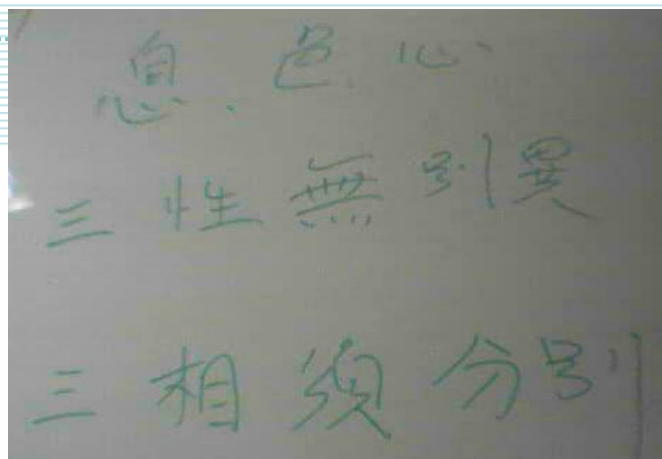 息、色、心
三性無別異
三相須分別